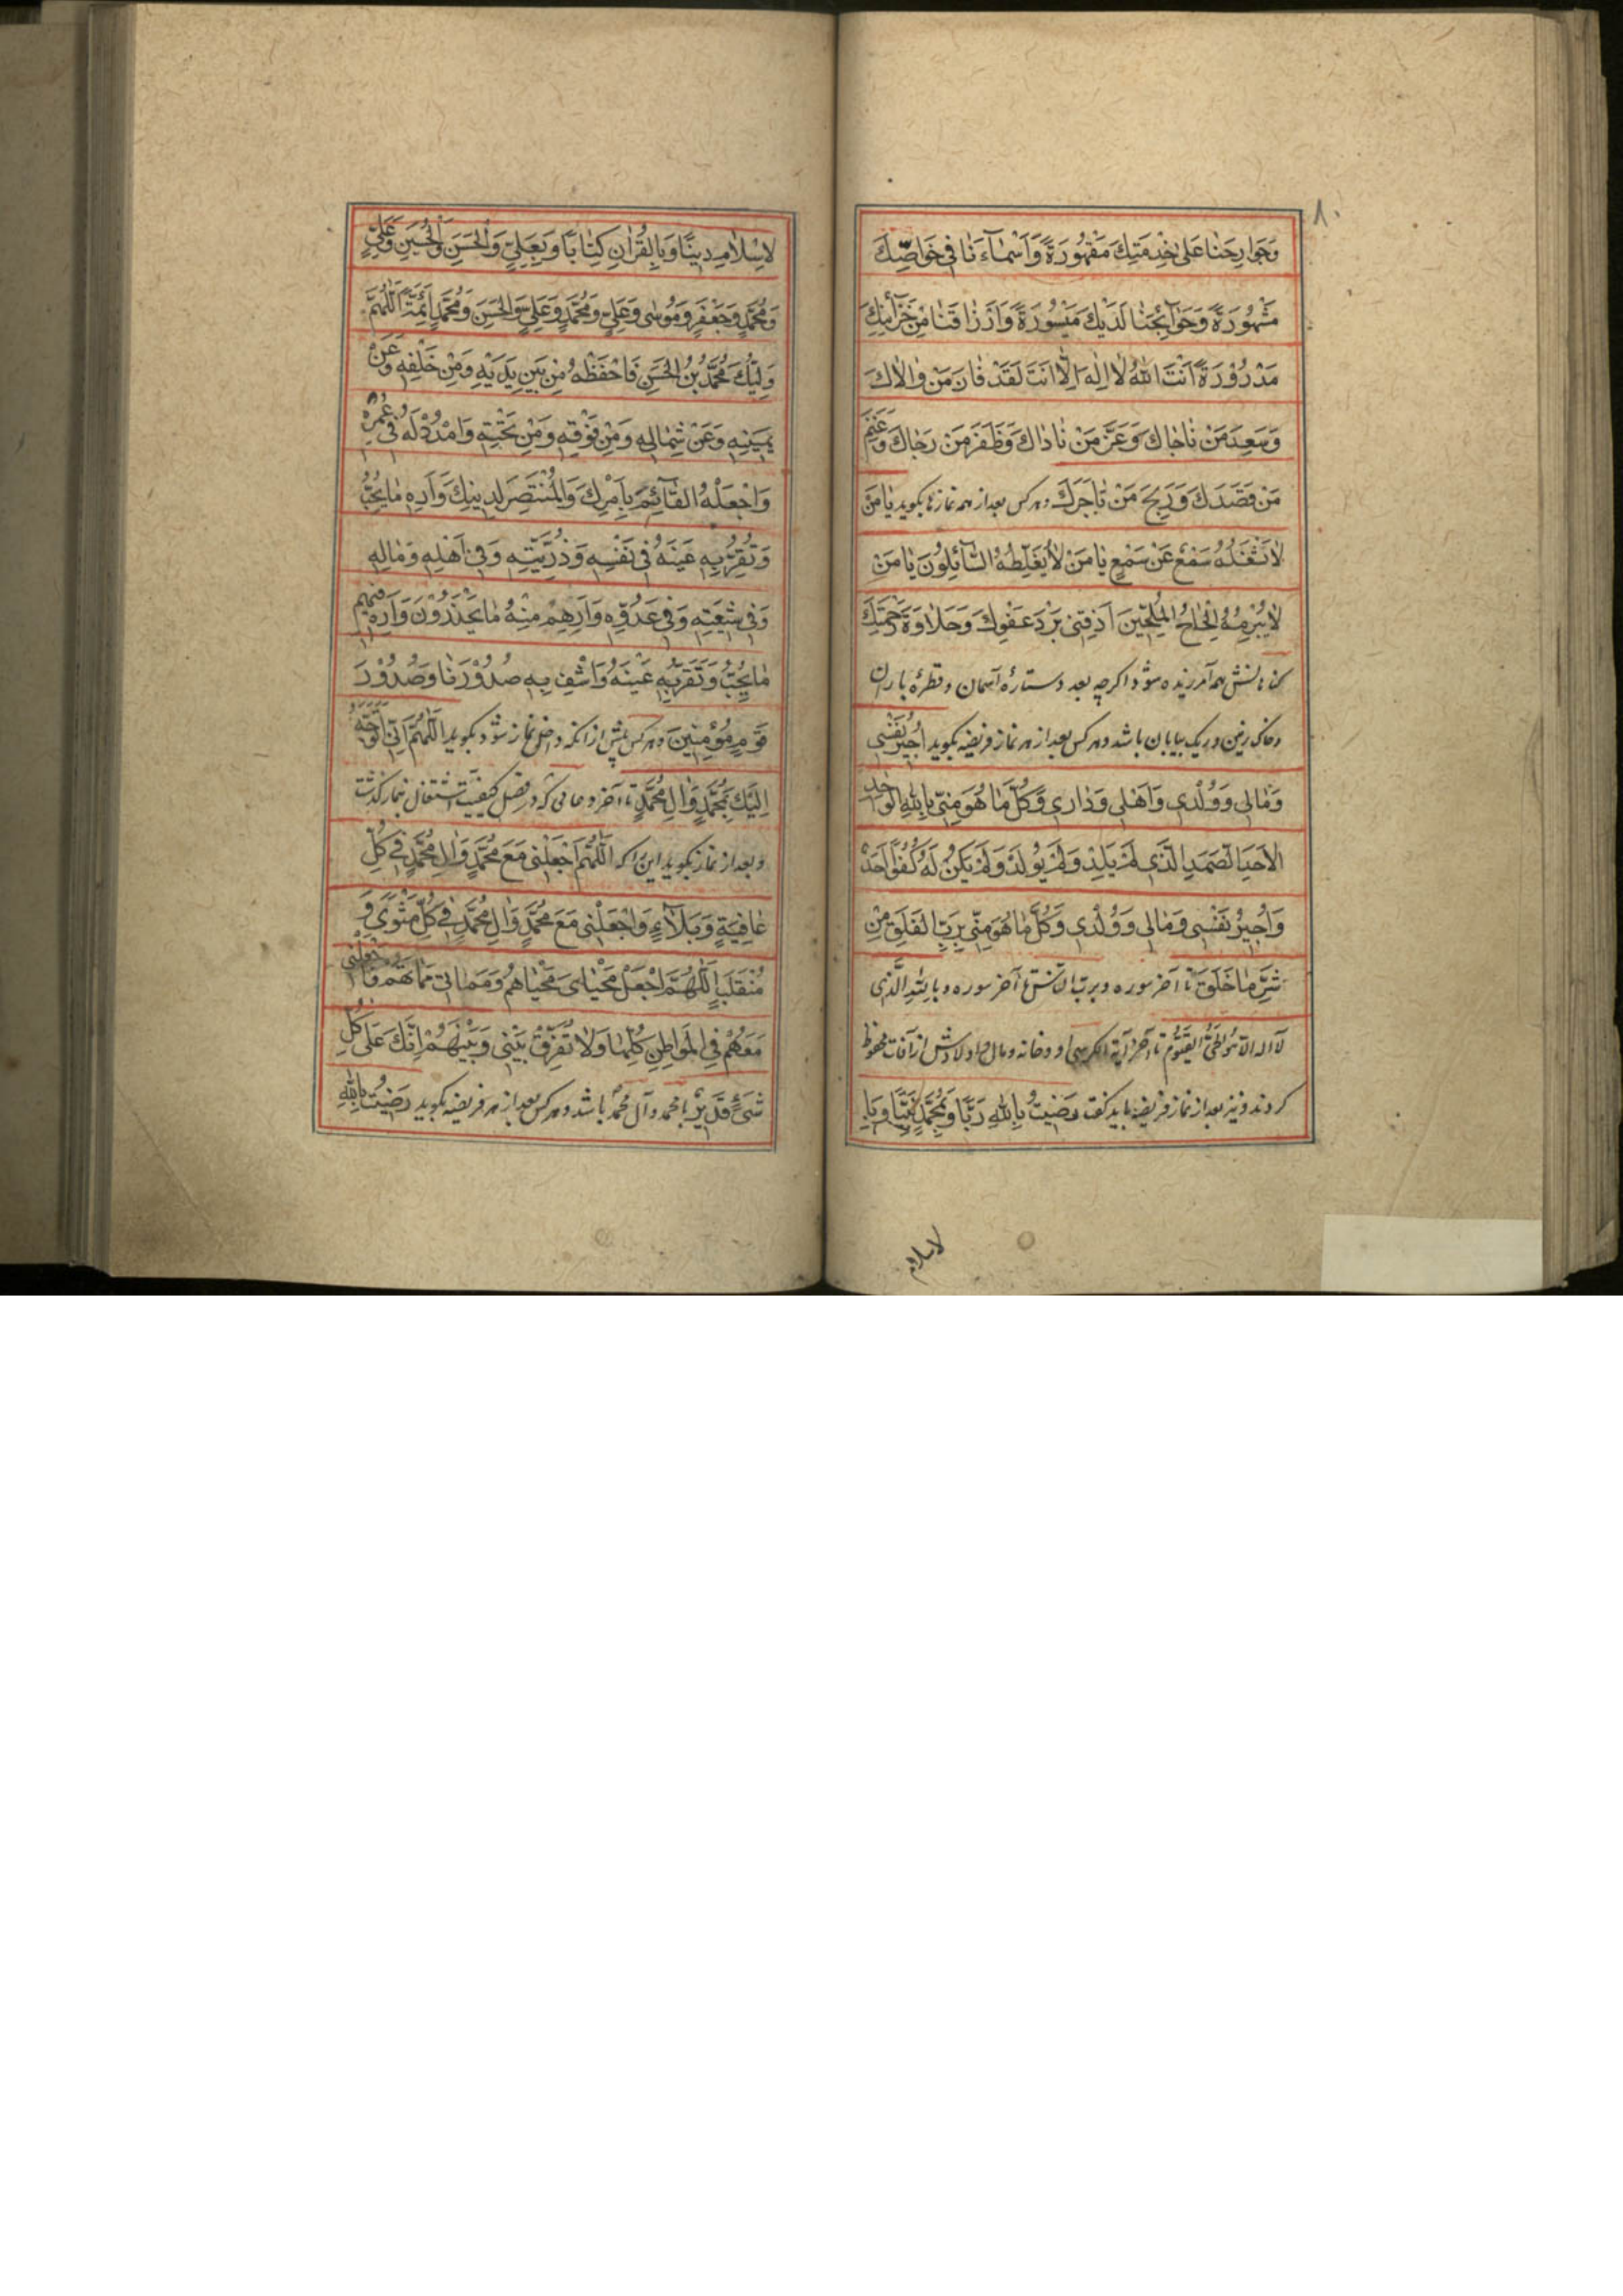 ۸۰
وَجَوارِحَنا عَلىٰ خِدْمَتِكَ مَقْهُورَةً وَاَسْمآءَنا فى خَواصِّكَ
مَشْهُورَةً وَحَوآئِجَنا لَدَيْكَ مَيْسُورَةً وَاَرْزاقَنا مِنْ خَزآئِنِكَ
مَدْرُورَةً اَنْتَ اللّٰهُ لا اِلٰهَ اِلّا اَنْتَ لَقَدْ فازَ مَنْ والاكَ
وَسَعِدَ مَنْ ناجاكَ وَعَزَّ مَنْ ناداكَ وَظَفَرَ مَنْ رَجاكَ وَغَنِمَ
مَنْ قَصَدَكَ وَرَبِحَ مَنْ تاجَرَكَ وهركس بعد از همه نمازها بكويد يا مَنْ
لا يَشْغَلُهُ سَمْعٌ عَنْ سَمْعٍ يا مَنْ لا يُغَلِّطُهُ السّآئِلُونَ يا مَنْ
لا يُبْرِمُهُ اِلْحاحُ المُلِحّينَ اَذِقْنى بَرْدَ عَفْوِكَ وَحَلاوَةَ رَحْمَتِكَ
كناهانش همه آمرزيده شود اكرچه بعدد ستارهٔ آسمان و قطرهٔ باران
وخاك زمين وريك بيابان باشد وهركس بعد از هر نماز فريضه بكويد اُجيرُ نَفْسى
وَمالى وَوُلْدى وَاَهْلى وَدارى وَكُلَّ ما هُوَ مِنّى بِاللّٰهِ الْواحِدِ
الاَحَدِ الصَّمَدِ الَّذى لَمْ يَلِدْ وَلَمْ يُولَدْ وَلَمْ يَكُنْ لَهُ كُفُوًا اَحَدٌ
وَاُجيرُ نَفْسى وَمالى وَوُلْدى وَكُلَّ ما هُوَ مِنّى بِرَبِّ الفَلَقِ مِنْ
شَرِّ ما خَلَقَ تا آخر سوره وبربّ النّاس تا آخر سوره وبِاللّٰهِ الَّذى
لا اله الّا هُوَ الحَىُّ القَيُّومُ تا آخر آية الكرسى او وخانه ومال واولادش از آفات محفوظ
كردند ونيز بعد از نماز فريضه بايد كفت رَضيتُ بِاللّٰهِ رَبًّا وَبِمُحَمَّدٍ نَبِيًّا وَبِا
لاسلام
لاِسْلامِ دينًا وَبِالْقُرْانِ كِتابًا وَبِعَلِىٍّ وَالْحَسَنِ وَالْحُسَيْنِ وَعَلِىٍّ
وَمُحَمَّدٍ وَجَعْفَرٍ وَمُوسٰى وَعَلِىٍّ وَمُحَمَّدٍ وَعَلِىٍّ وَالحَسَنِ وَمُحَمَّدٍ اَئِمَّةً اَللّٰهُمَّ
وَلِيُّكَ مُحَمَّدُ بْنُ الحَسَنِ فَاحْفَظْهُ مِنْ بَيْنِ يَدَيْهِ وَمِنْ خَلْفِهِ وَعَنْ
يَمينِهِ وَعَنْ شِمالِهِ وَمِنْ فَوْقِهِ وَمِنْ تَحْتِهِ وَامْدُدْ لَهُ فى عُمُرِهِ
وَاجْعَلْهُ القآئِمَ بِاَمْرِكَ وَالْمُنْتَصِرَ لِدينِكَ وَاَرِهِ ما يُحِبُّ
وَتُقِرُّ بِهِ عَيْنَهُ فى نَفْسِهِ وَذُرِّيَّتِهِ وَفى اَهْلِهِ وَمالِهِ
وَفى شيعَتِهِ وَفى عَدُوِّهِ وَاَرِهِمْ مِنْهُ ما يَحْذَرُوْنَ وَاَرِهِ فيهِمْ
ما يُحِبُّ وَتُقِرُّ بِهِ عَيْنَهُ وَاشْفِ بِهِ صُدُوْرَنا وَصُدُوْرَ
قَوْمٍ مُؤْمِنينَ وهركس پيش از آنكه داخل نماز شود بكويد اللّٰهُمَّ اِنّى اَتَوَجَّهُ
اِلَيْكَ بِمُحَمَّدٍ وَالِ مُحَمَّدٍ تا آخر دعائى كه در فصل كيفيّت اشتغال بنماز كذشت
وبعد از نماز بكويد اين را كه اَللّٰهُمَّ اجْعَلْنى مَعَ مُحَمَّدٍ وَالِ مُحَمَّدٍ فى كُلِّ
عافِيَةٍ وَبَلآءٍ وَاجْعَلْنى مَعَ مُحَمَّدٍ وَالِ مُحَمَّدٍ فى كُلِّ مَثْوًى وَ
مُنْقَلَبٍ اَللّٰهُمَّ اجْعَلْ مَحْياىَ مَحْياهُمْ وَمَماتى مَماتَهُمْ وَاجْعَلْنى
مَعَهُمْ فِى المَواطِنِ كُلِّها وَلا تُفَرِّقْ بَيْنى وَبَيْنَهُمْ اِنَّكَ عَلىٰ كُلِّ
شَىْءٍ قَديرٌ با محمد وآل محمّد باشد وهركس بعد از هر فريضه بكويد رَضيتُ بِاللّٰهِ